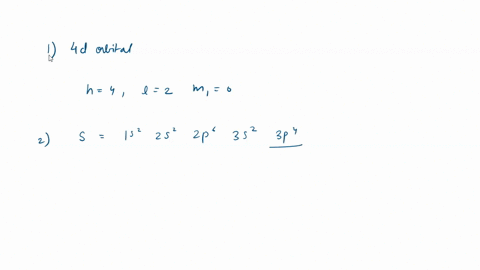 1) 4d orbital
n = 4, l = 2 m₁ = 0
2) S = 1s² 2s² 2p⁶ 3s² 3p⁴